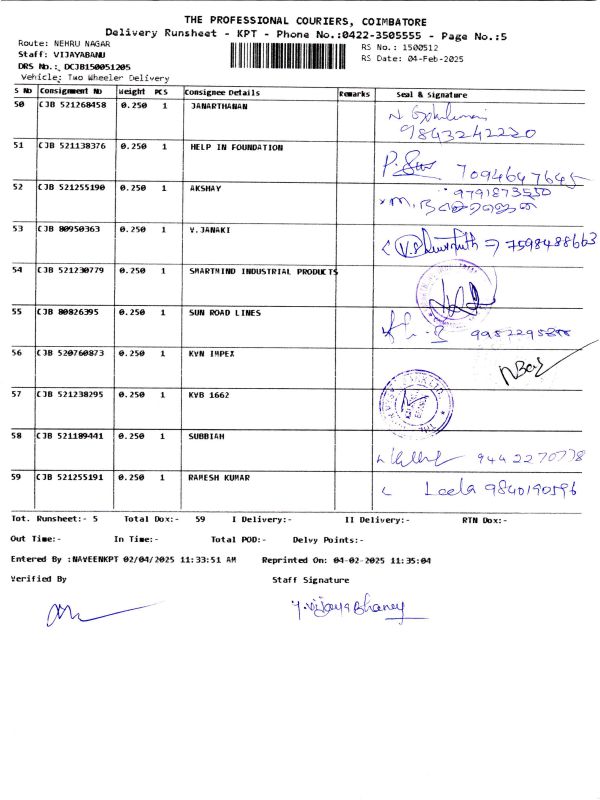 THE PROFESSIONAL COURIERS, COIMBATORE
Delivery Runsheet - KPT - Phone No.:0422-3505555 - Page No.:5
Route: NEHRU NAGAR
RS No.: 1500512
Staff: VIJAYABANU
RS Date: 04-Feb-2025
DRS No.: DCJB150051205
Vehicle: Two Wheeler Delivery
S No Consignment No Weight PCS Consignee Details Remarks Seal & Signature
50 CJB 521268458 0.250 1 JANARTHANAN
9843242220
51 CJB 521138376 0.250 1 HELP IN FOUNDATION
7094647645
52 CJB 521255190 0.250 1 AKSHAY
9791873550
53 CJB 80950363 0.250 1 V.JANAKI
7598488663
54 CJB 521230779 0.250 1 SMARTMIND INDUSTRIAL PRODUCTS
55 CJB 80826395 0.250 1 SUN ROAD LINES
56 CJB 520760873 0.250 1 KVN IMPEX
57 CJB 521238295 0.250 1 KVB 1662
58 CJB 521189441 0.250 1 SUBBIAH
59 CJB 521255191 0.250 1 RAMESH KUMAR
Leela 9840190596
Tot. Runsheet:- 5 Total Dox:- 59 I Delivery:- II Delivery:- RTN Dox:-
Out Time:- In Time:- Total POD:- Delvy Points:-
Entered By :NAVEENKPT 02/04/2025 11:33:51 AM Reprinted On: 04-02-2025 11:35:04
Verified By Staff Signature